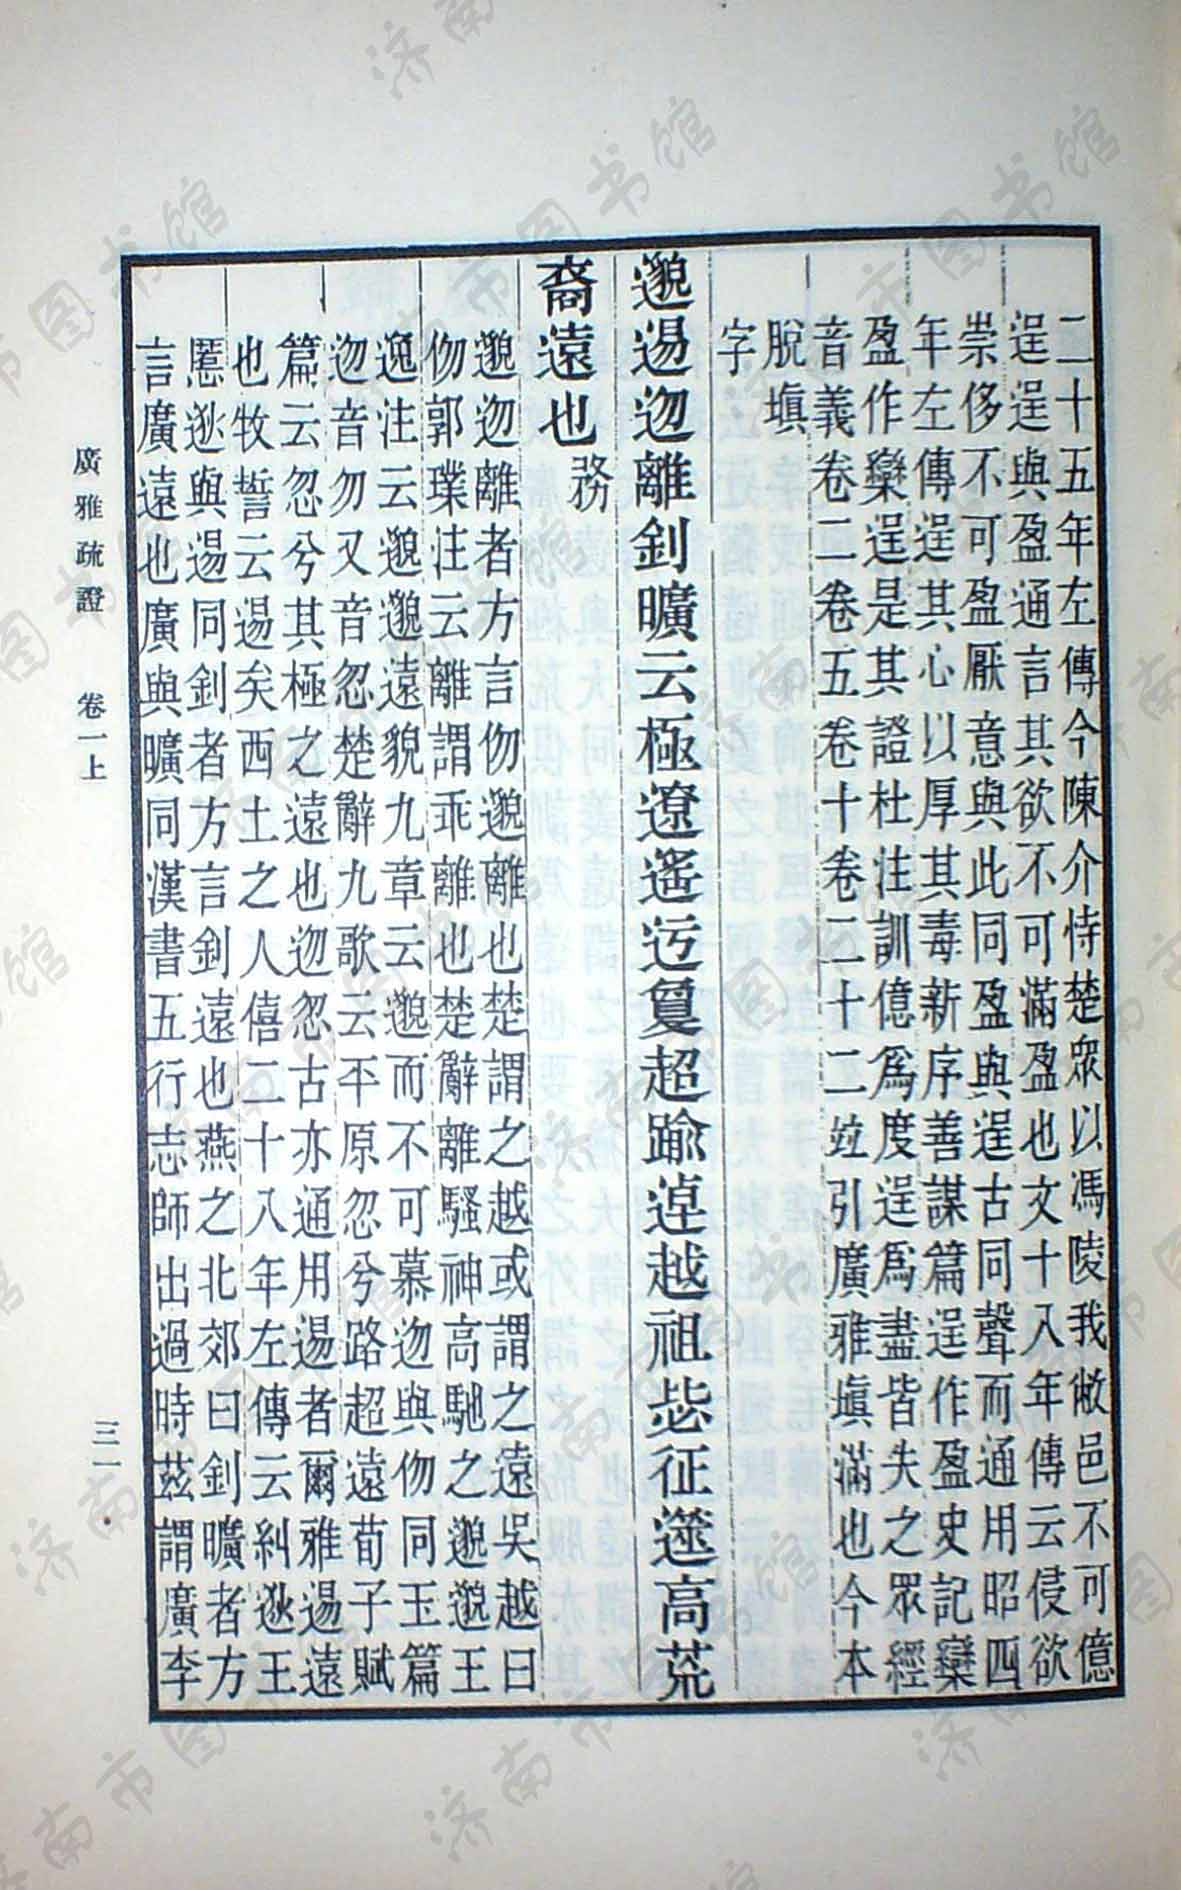 二十五年左傳今陳介恃楚眾以馮陵我敝邑不可億
逞逞與盈通言其欲不可滿盈也文十八年傳云侵欲
崇侈不可盈厭意與此同盈與逞古同聲而通用昭四
年左傳逞其心以厚其毒新序善謀篇逞作盈史記欒
盈作欒逞是其證杜注訓億爲度逞爲盡皆失之眾經
音義卷二卷五卷十卷二十二竝引廣雅塡滿也今本
脫塡
字
邈逷離釗曠云極遼遙迃敻超踰逴越祖毖征遾高荒
裔遠也務
邈離者方言伆邈離也楚謂之越或謂之遠吳越曰
伆郭璞注云離謂乖離也楚辭離騷神高馳之邈邈王
逸注云邈邈遠貌九章云邈而不可慕與伆同玉篇
音勿又音忽楚辭九歌云平原忽兮路超遠荀子賦
篇云忽兮其極之遠也忽古亦通用逷者爾雅逷遠
也牧誓云逷矣西土之人僖二十八年左傳云糾逖王
慝逖與逷同釗者方言釗遠也燕之北郊曰釗曠者方
言廣遠也廣與曠同漢書五行志師出過時茲謂廣李
廣雅疏證 卷一上
三一
济南市图书馆